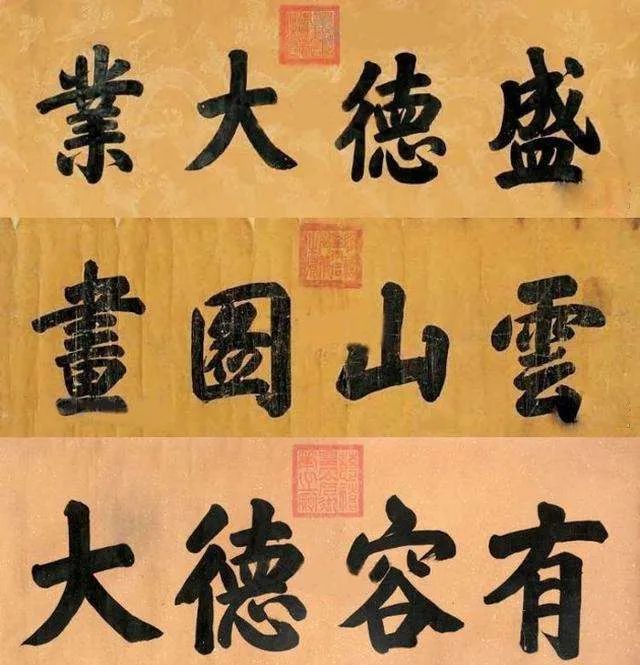 盛德大業
雲山圖畫
有容德大